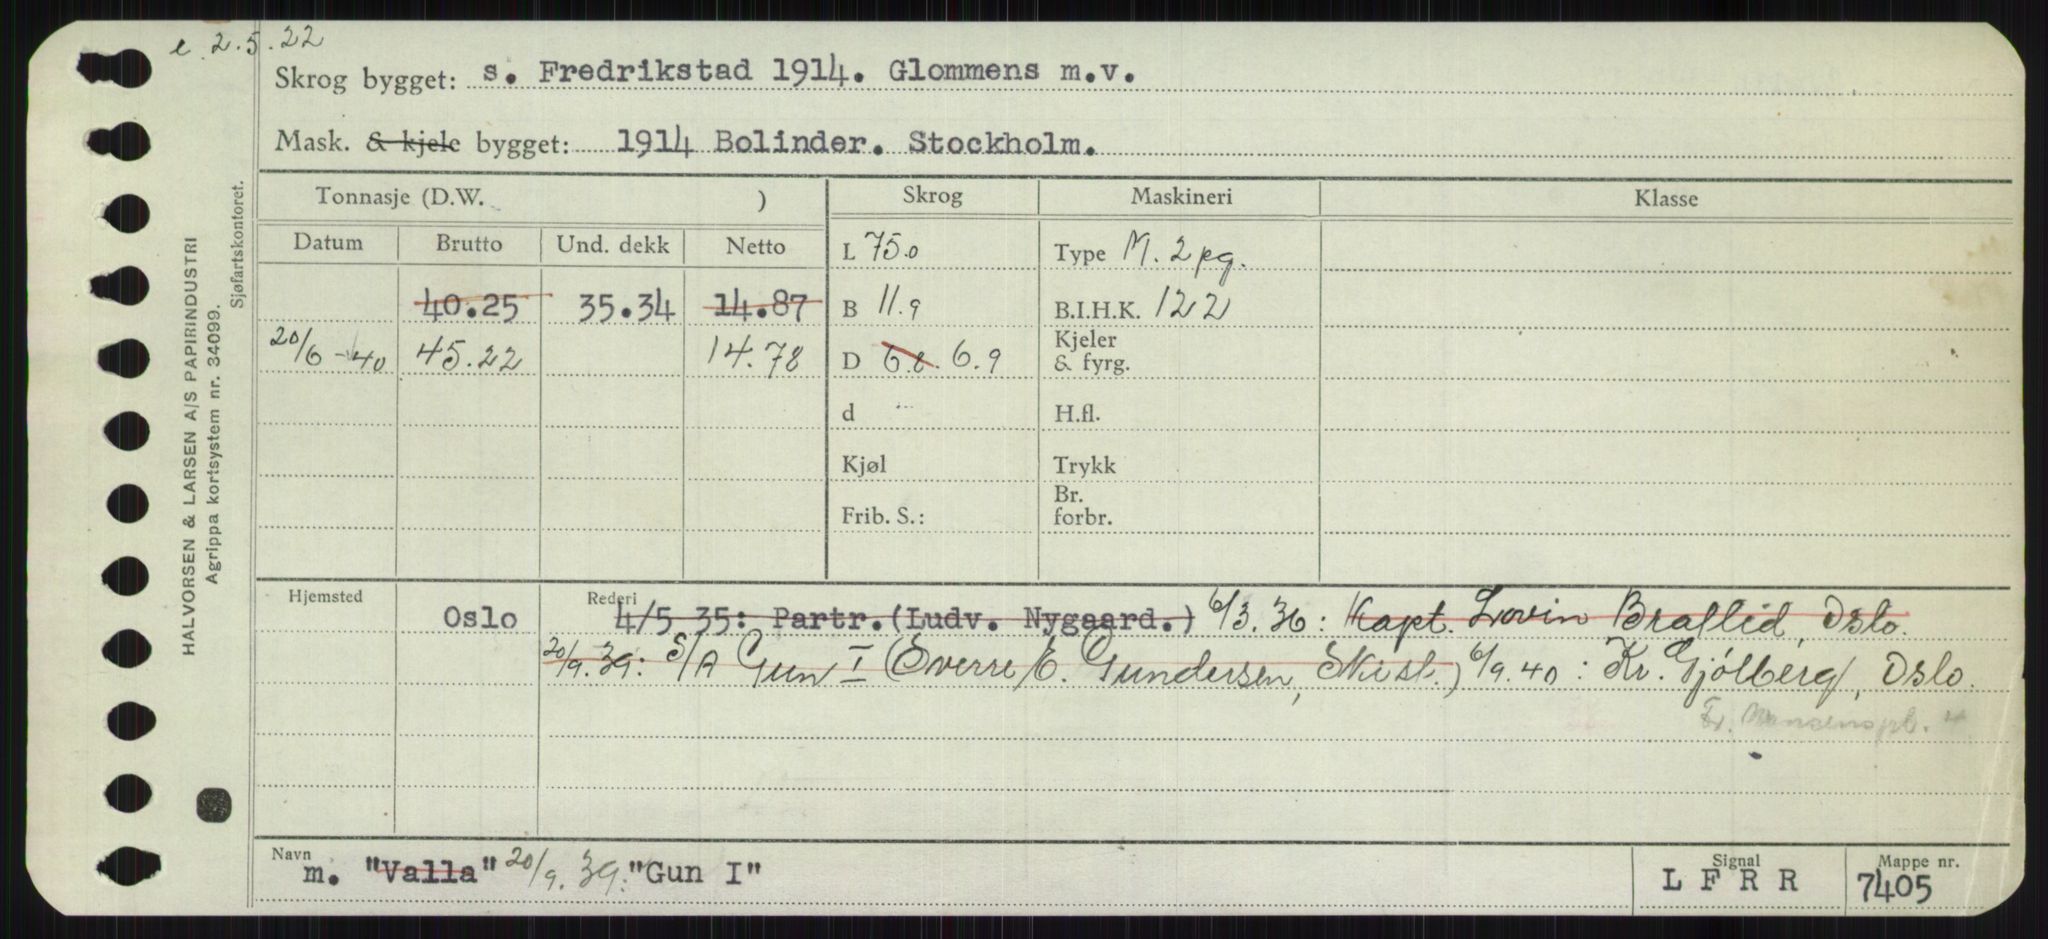 e 2.5.22
Skrog bygget: s. Fredrikstad 1914. Glommens m.v.
Mask. & kjele bygget: 1914 Bolinder. Stockholm.
Tonnasje (D.W. ) Skrog Maskineri Klasse
Datum Brutto Und. dekk Netto L 75.0 Type M. 2 pg.
40.25 35.34 14.87 B 11.9 B.I.H.K. 122
20/6-40 45.22 14.78 D 6.8. 6.9 Kjeler & fyrg.
d H.fl.
Kjøl Trykk
Frib. S.: Br. forbr.
Hjemsted Oslo Rederi 4/5 35: Partr. (Ludv. Nygaard.) 6/3.36: Kapt. Lovin Braflid, Oslo.
20/9.39: S/A Gun I (Sverre E. Gundersen, Ski st.) 6/9.40: Kr. Gjølberg, Oslo.
Navn m. "Valla" 20/9.39: "Gun I" Signal L F R R Mappe nr. 7405
HALVORSEN & LARSEN A/S PAPIRINDUSTRI
Agrippa kortsystem nr. 34099.
Sjøfartskontoret.